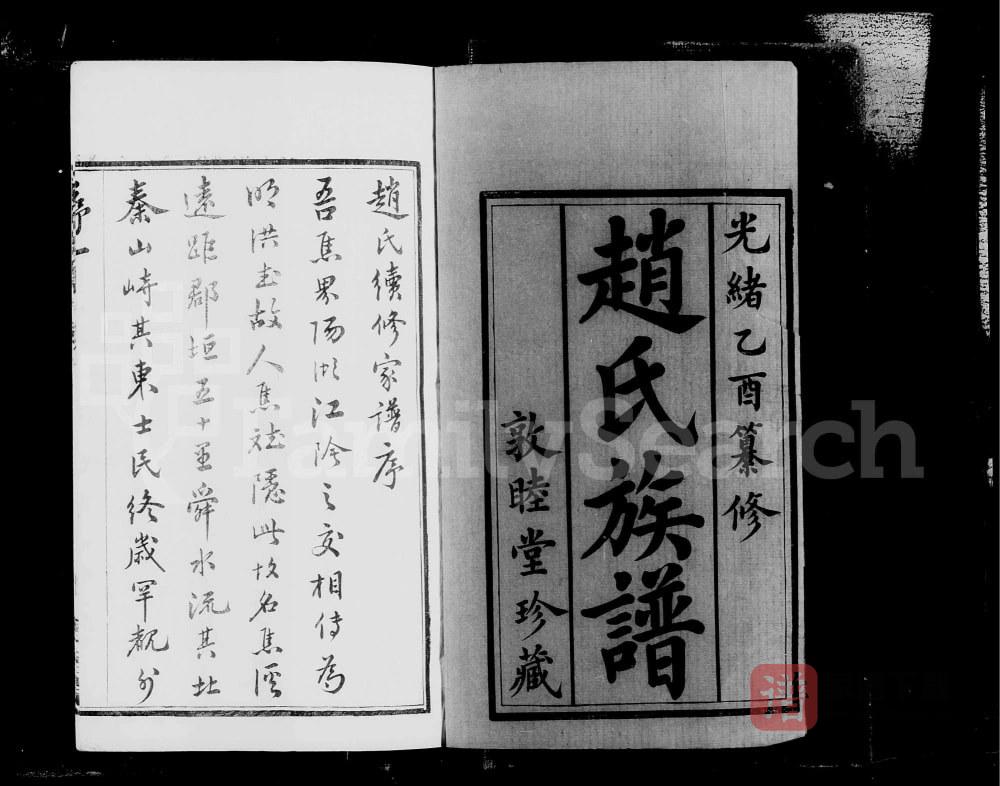 光緒乙酉纂修
趙氏族譜
敦睦堂珍藏
趙氏續修家譜序
吾焦界陽湖江陰之交相傳為
明洪武故人焦 隱此故名焦溪
遠距郡垣五十里舜水流其北
秦山峙其東士民終歲罕覯外
FamilySearch
譜